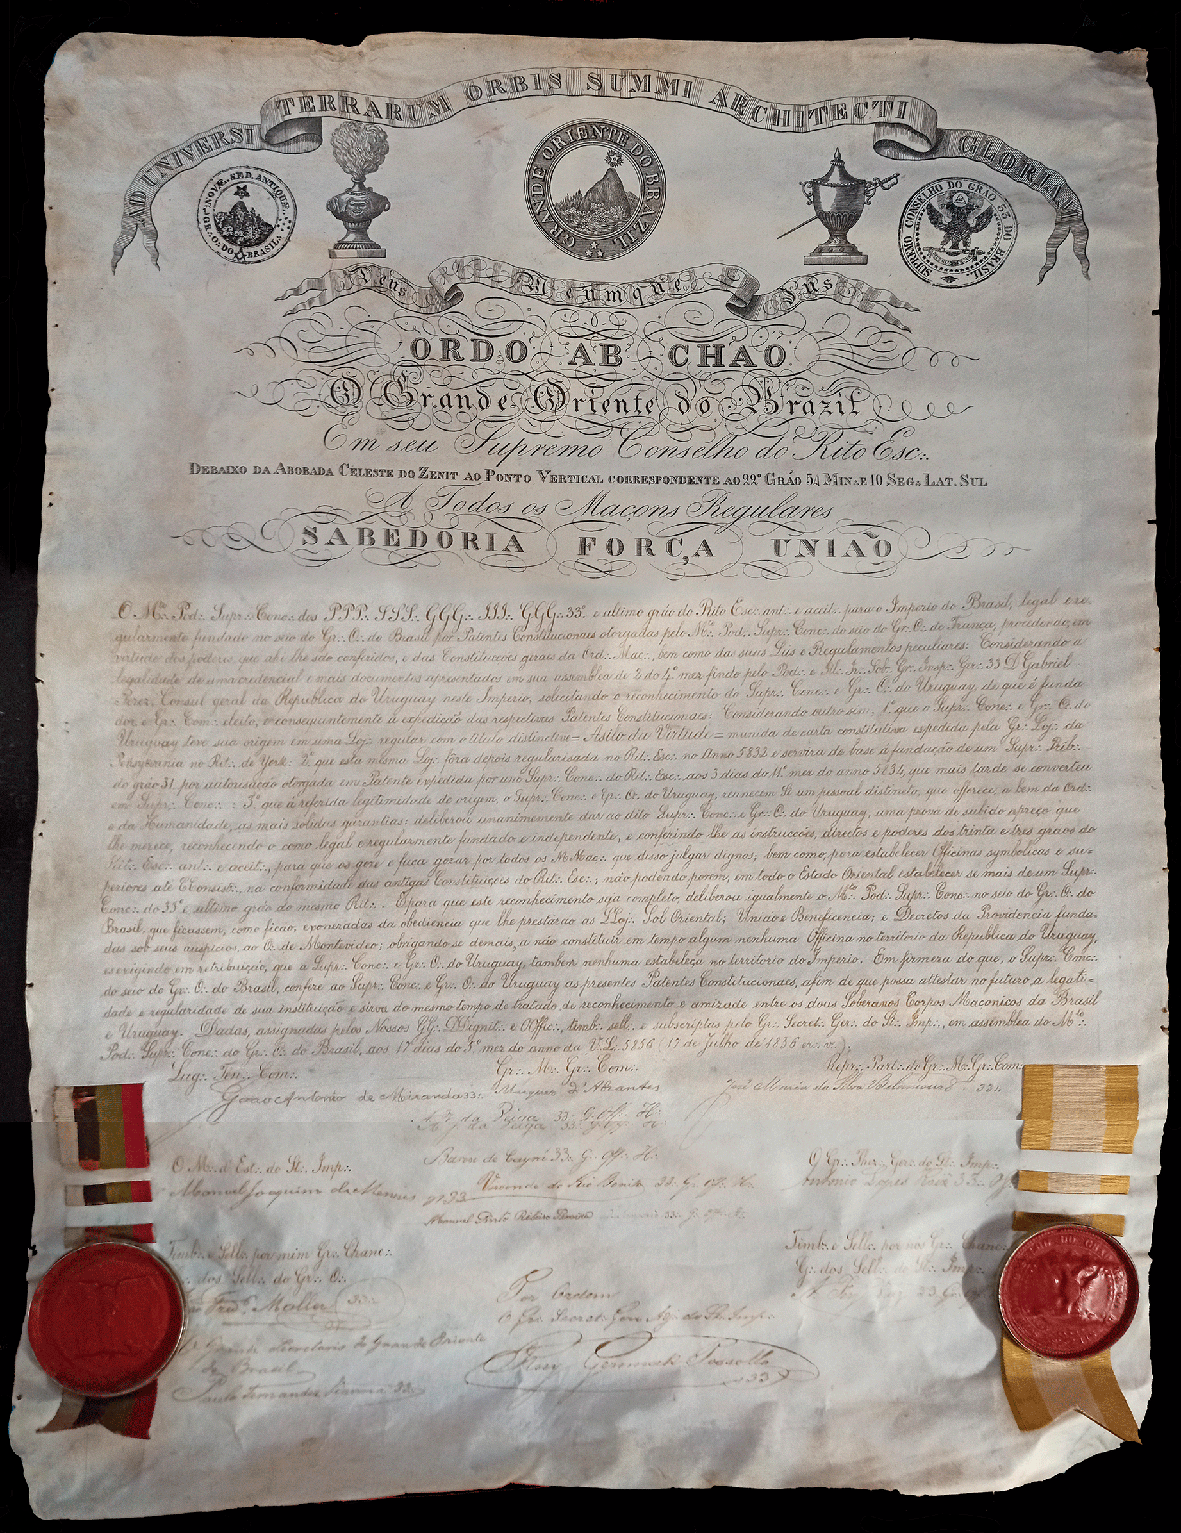 AD UNIVERSI TERRARUM ORBIS SUMMI ARCHITECTI GLORIAM
GRANDE ORIENTE DO BRAZIL
SUPREMO CONSELHO DO GRÁO 33 DO BRASIL
Deus Meumque Jus
ORDO AB CHAO
O Grande Oriente do Brazil
Em seu Supremo Conselho do Rito Esc∴
DEBAIXO DA ABOBADA CELESTE DO ZENIT AO PONTO VERTICAL CORRESPONDENTE AO 22° GRÁO 54 MIN. E 10 SEG. LAT. SUL
A Todos os Maçons Regulares
SABEDORIA FORÇA UNIÃO
O M∴ Pod∴ Supr∴ Conc∴ dos PPP∴ SSS∴ GGG∴ III∴ GGG∴ 33° e ultimo gráo do Rito Esc∴ ant∴ e aceit∴ para o Imperio do Brasil, legal e re-
gularmente fundado no seio do Gr∴ O∴ do Brasil por Patentes Constitucionais otorgadas pelo M∴ Pod∴ Supr∴ Conc∴ do seio do Gr∴ O∴ de França, procedendo em
virtude dos poderes, que ahi lhe são conferidos, e das Constituições geraes da Ord∴ Mac∴, bem como das suas Leis e Regulamentos peculiares: Considerando a
legalidade de uma credencial e mais documentos apresentados em sua assemblea de 2 do 4° mez findo pelo Pod∴ e Ill∴ Ir∴ Sob∴ Gr∴ Insp∴ Ger∴ 33 D. Gabriel
Perez, Consul geral da Republica do Uruguay neste Imperio, solicitando o reconhecimento do Supr∴ Conc∴ e Gr∴ O∴ do Uruguay, de que é funda
dor e Gr∴ Com∴ eleito, e conseguintemente a expedição das respectivas Patentes Constitucionaes: Considerando outro sim, 1° que o Supr∴ Conc∴ e Gr∴ O∴ do
Uruguay teve sua origem em uma Loj∴ regular com o titulo distinctivo = Asilo da Virtude = munida de carta constitutiva expedida pela Gr∴ Loj∴ da
Pensylvania no Rit∴ de York: 2° que esta mesma Loj∴ fora depois regularisada no Rit∴ Esc∴ no Anno 5832 e servira de base á fundação de um Supr∴ Trib∴
do gráo 31 por autorisação otorgada em Patente expedida por um Supr∴ Conc∴ do Rit∴ Esc∴ aos 3 dias do 11° mez do anno 5854, que mais tarde se converteu
em Supr∴ Conc∴: 3° que á referida legitimidade de origem, o Supr∴ Conc∴ e Gr∴ O∴ do Uruguay, reunem um pessoal distincto, que offerece, a bem da Ord∴
e da Humanidade, as mais solidas garantias: deliberou unanimemente dar ao dito Supr∴ Conc∴ e Gr∴ O∴ do Uruguay, uma prova do subido apreço que
lhe merece, reconhecendo o como legal e regularmente fundado e independente, e conferindo lhe as instrucções, directos e poderes dos trinta e tres gráos do
Rit∴ Esc∴ ant∴ e aceit∴, para que os gose e faca gozar por todos os MMac∴ que disso julgar dignos, bem como, para estabelecer Officinas symbolicas e su-
periores até Consist∴, na conformidade das antigas Constituições do Rit∴ Esc∴, não podendo porem, em todo o Estado Oriental estabelecer se mais de um Supr∴
Conc∴ do 33° e ultimo gráo do mesmo Rit∴. E para que este reconhecimento seja completo, deliberou igualmente o M∴ Pod∴ Supr∴ Conc∴ no seio do Gr∴ O∴ do
Brasil, que ficassem, como ficão, exoneradas da obediencia que lhe prestarão as LLoj∴ Sol Oriental; União e Beneficencia; e Decretos da Providencia funda-
das sob seus auspicios, ao O∴ de Montevideo; obrigando-se demais, a não constituir em tempo algum nenhuma Officina no territorio da Republica do Uruguay,
e exigindo em retribuição, que a Supr∴ Conc∴ e Gr∴ O∴ do Uruguay, tambem nenhuma estabeleça no territorio do Imperio. Em firmeza do que, o Supr∴ Conc∴
do seio do Gr∴ O∴ do Brasil, confere ao Supr∴ Conc∴ e Gr∴ O∴ do Uruguay as presentes Patentes Constitucionaes, afim de que possa attestar no futuro a legali-
dade e regularidade de sua instituição e sirva ao mesmo tempo de tratado de reconhecimento e amizade entre os dous Soberanos Corpos Maconicos da Brasil
e Uruguay. Dadas, assignadas pelos Nossos GG∴ DDignit∴ e OOffic∴, timb∴ sell∴ e subscriptas pelo Gr∴ Secret∴ Ger∴ do St∴ Imp∴, em assemblea do M∴
Pod∴ Supr∴ Conc∴ do Gr∴ O∴ do Brasil, aos 17 dias do 5° mez do anno da V∴ L∴ 5856 (17 de Julho de 1856 e∴ v∴).
Lug∴ Ten∴ Com∴ Gr∴ M∴ Gr∴ Com∴ Repr∴ Part∴ do Gr∴ M∴ Gr∴ Com∴
João Antonio de Miranda 33∴ Marquez d'Abrantes José Maria da Silva 33∴
Barão de Cayrú 33∴ G∴ Off∴ H∴
O M∴ d'Est∴ do St∴ Imp∴
Manoel Joaquim de Menezes 33
Timb∴ e Sell∴ por mim Gr∴ Chanc∴
G∴ dos Sell∴ do Gr∴ O∴
Fred∴ Moller 33∴
Grande Secretario do Grande Oriente
do Brasil
33∴
Visconde do Rio Bonito 33∴ G∴ Off∴ H∴
Por Ordem
O Gr∴ Secret∴ Gen∴ do St∴ Imp∴
33
Antonio Lopes 33∴
Timb∴ e Sell∴ por nos Gr∴ Chanc∴
G∴ dos Sell∴ do St∴ Imp∴